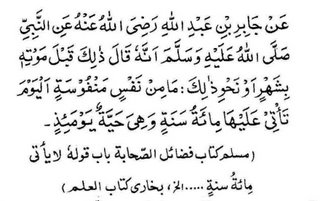 عَنْ جَابِرِ بْنِ عَبْدِ اللهِ رَضِيَ اللهُ عَنْهُ عَنِ النَّبِيِّ
صَلَّى اللهُ عَلَيْهِ وَسَلَّمَ اَنَّهٗ قَالَ ذٰلِكَ قَبْلَ مَوْتِهٖ
بِشَهْرٍ اَوْ نَحْوِ ذٰلِكَ: مَا مِنْ نَفْسٍ مَنْفُوْسَةٍ الْيَوْمَ
تَأْتِيْ عَلَيْهَا مِائَةُ سَنَةٍ وَهِيَ حَيَّةٌ يَوْمَئِذٍ۔
(مسلم کتاب فضائل الصّحابة باب قولهٗ لا یأتی
مائة سنةٍ ..... الخ، بخاری کتاب العلم)